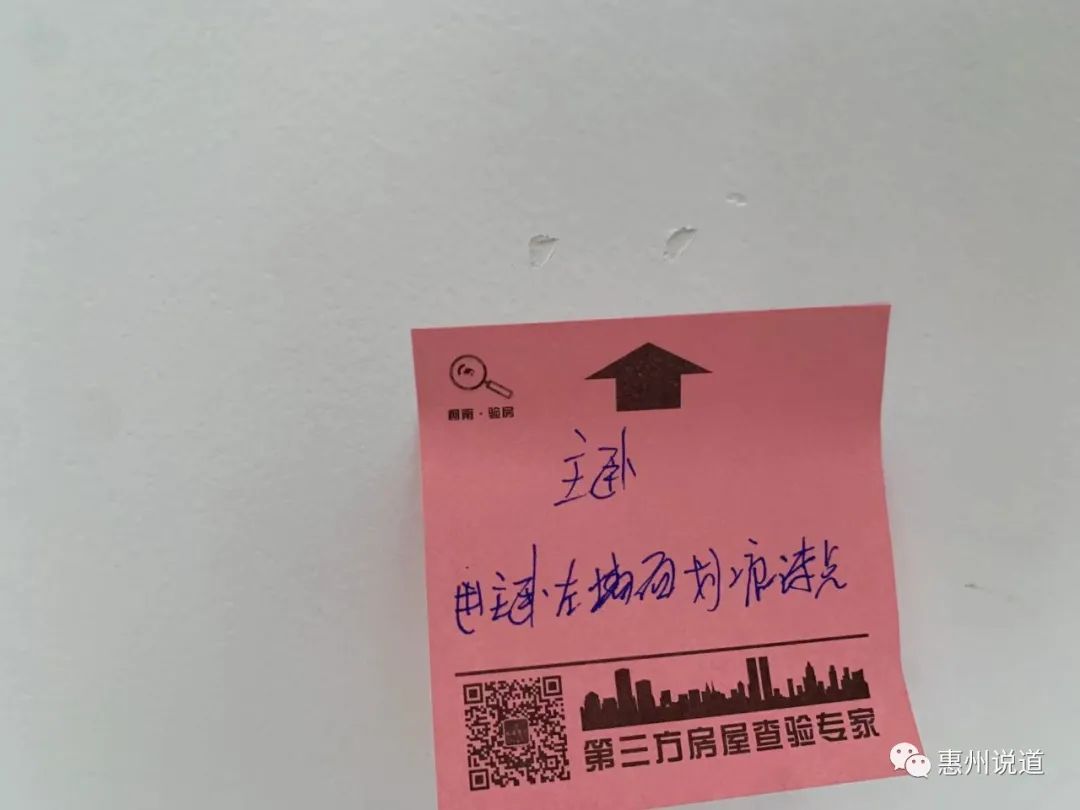 柯南·验房
主卧
主卧左墙面划痕
第三方房屋查验专家
惠州说道